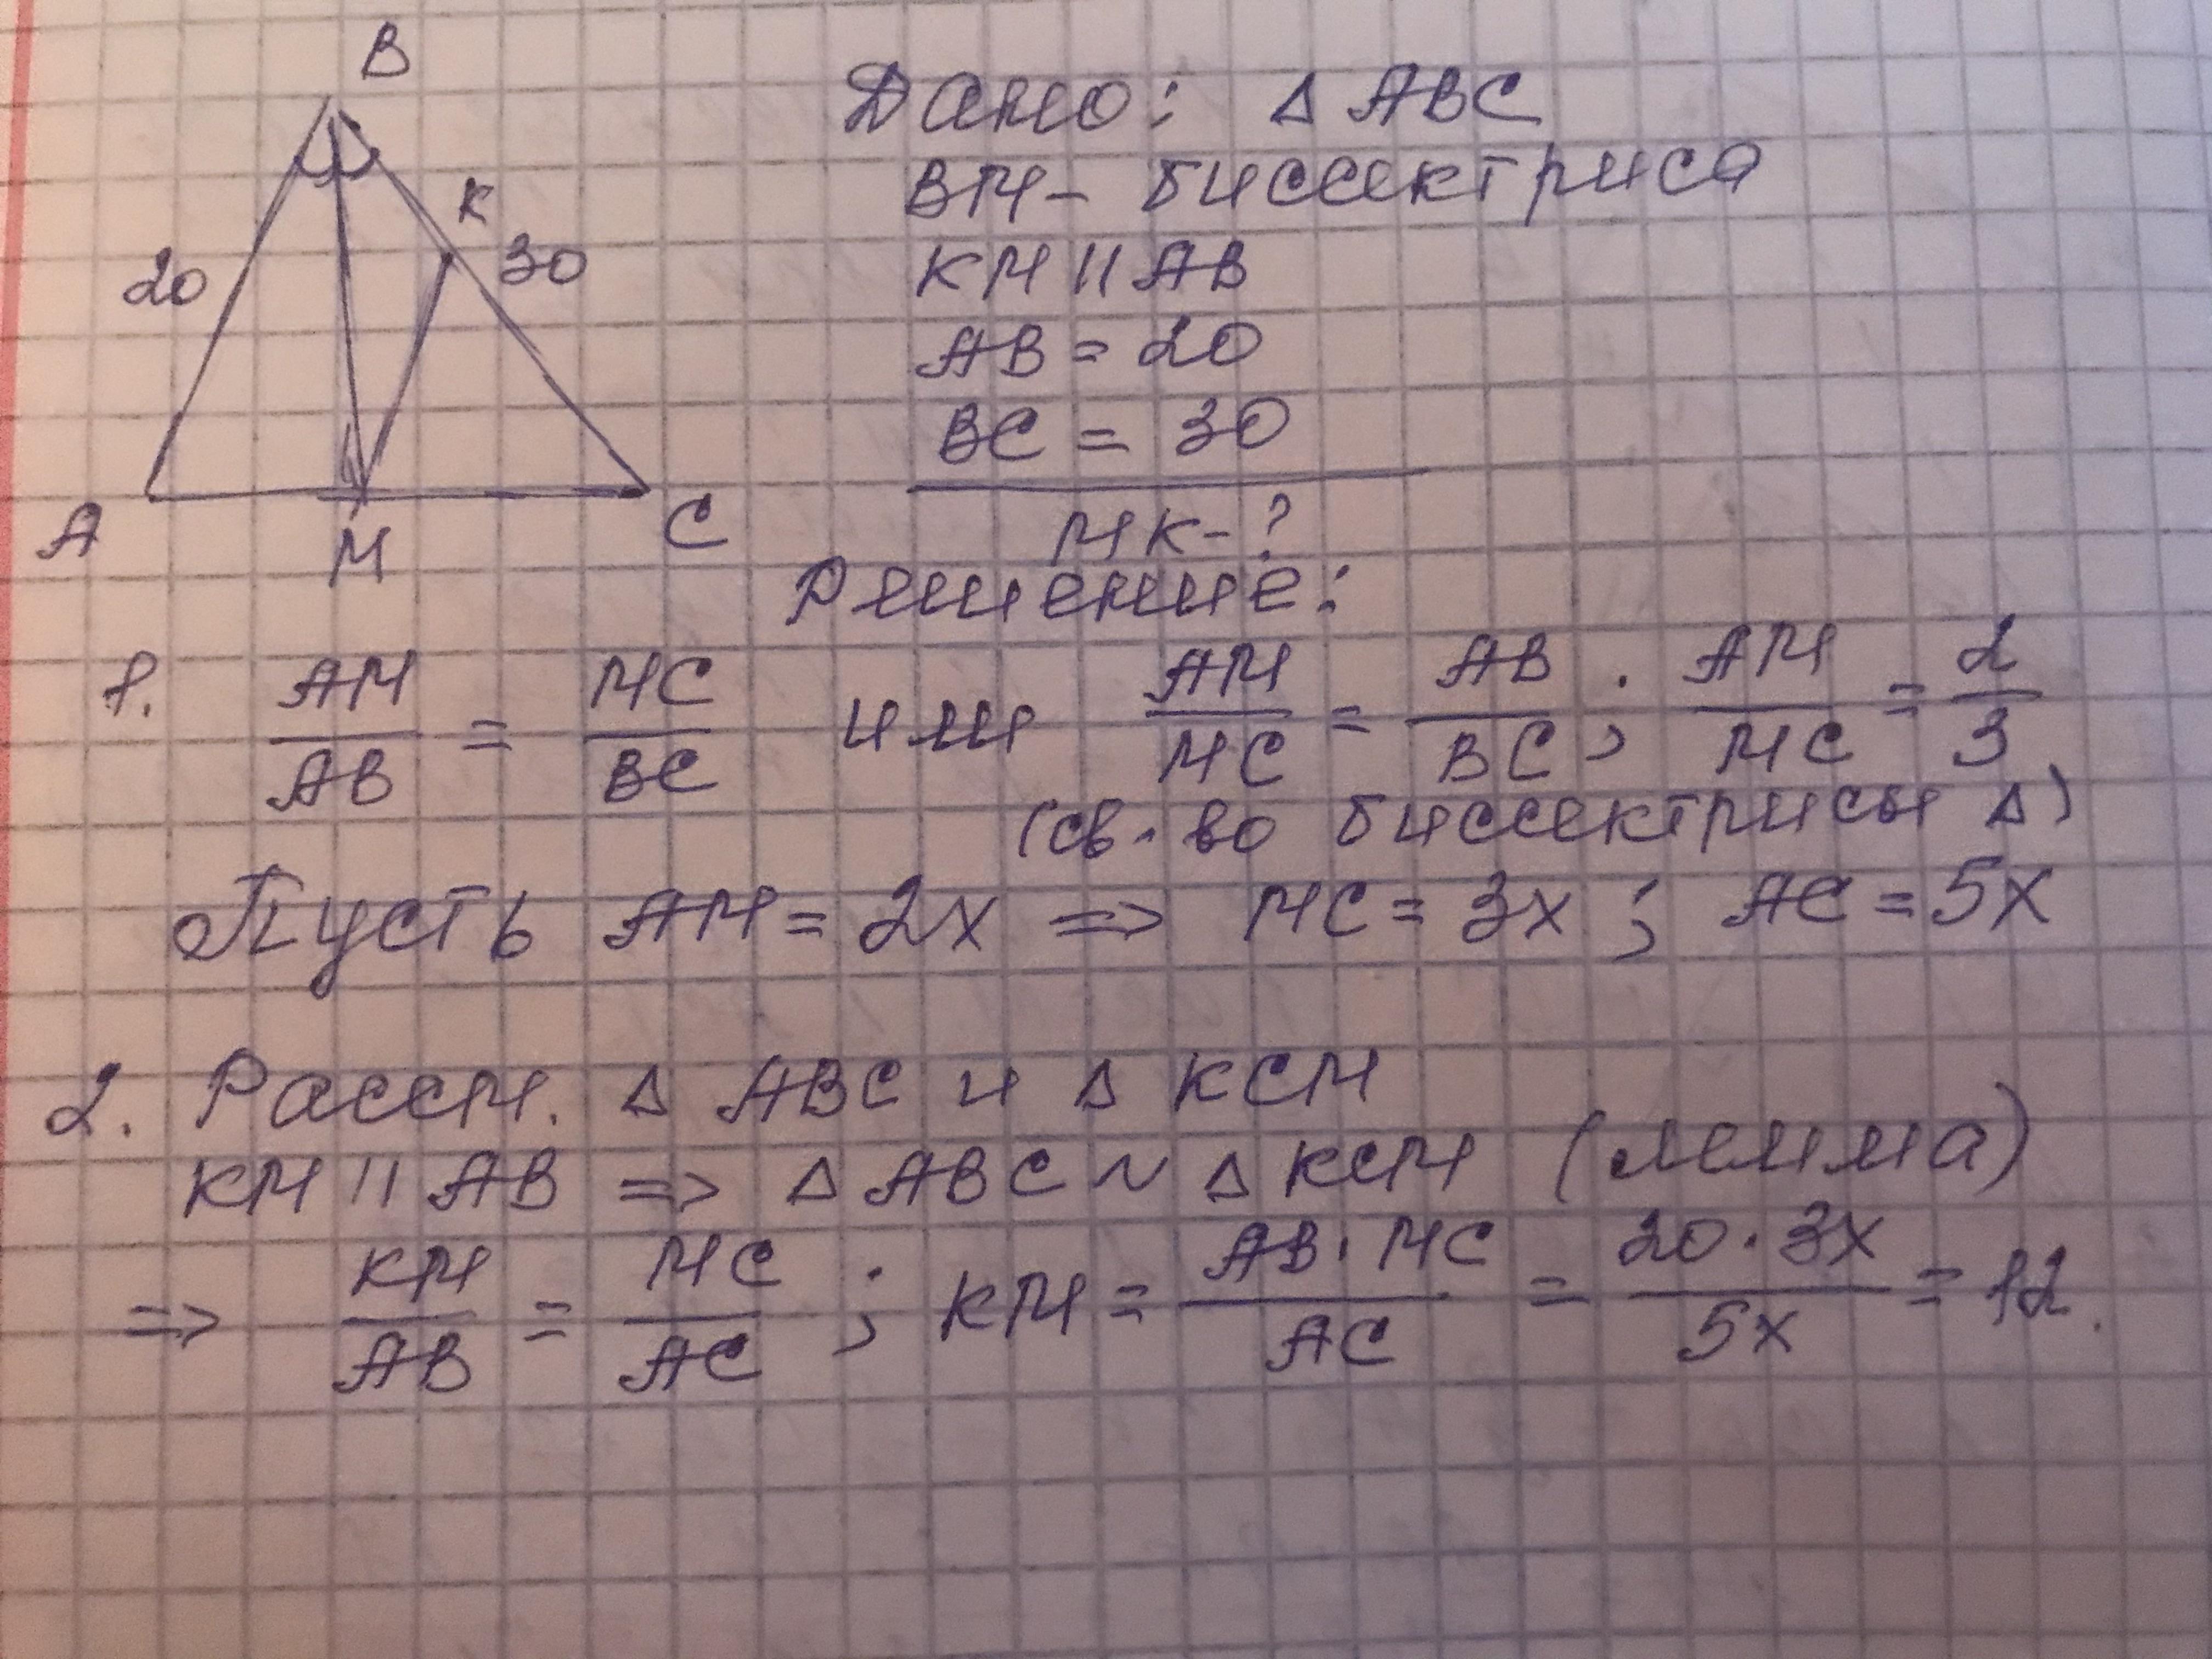 B
K
20
30
A
M
C
Дано: Δ ABC
BM - биссектриса
KM || AB
AB = 20
BC = 30
MK - ?
Решение:
1. AM/AB = MC/BC или AM/MC = AB/BC ; AM/MC = 2/3
(св-во биссектрисы Δ)
Пусть AM = 2x => MC = 3x ; AC = 5x
2. Рассм. Δ ABC и Δ KCM
KM || AB => Δ ABC ~ Δ KCM (лемма)
=> KM/AB = MC/AC ; KM = AB · MC/AC = 20 · 3x/5x = 12.